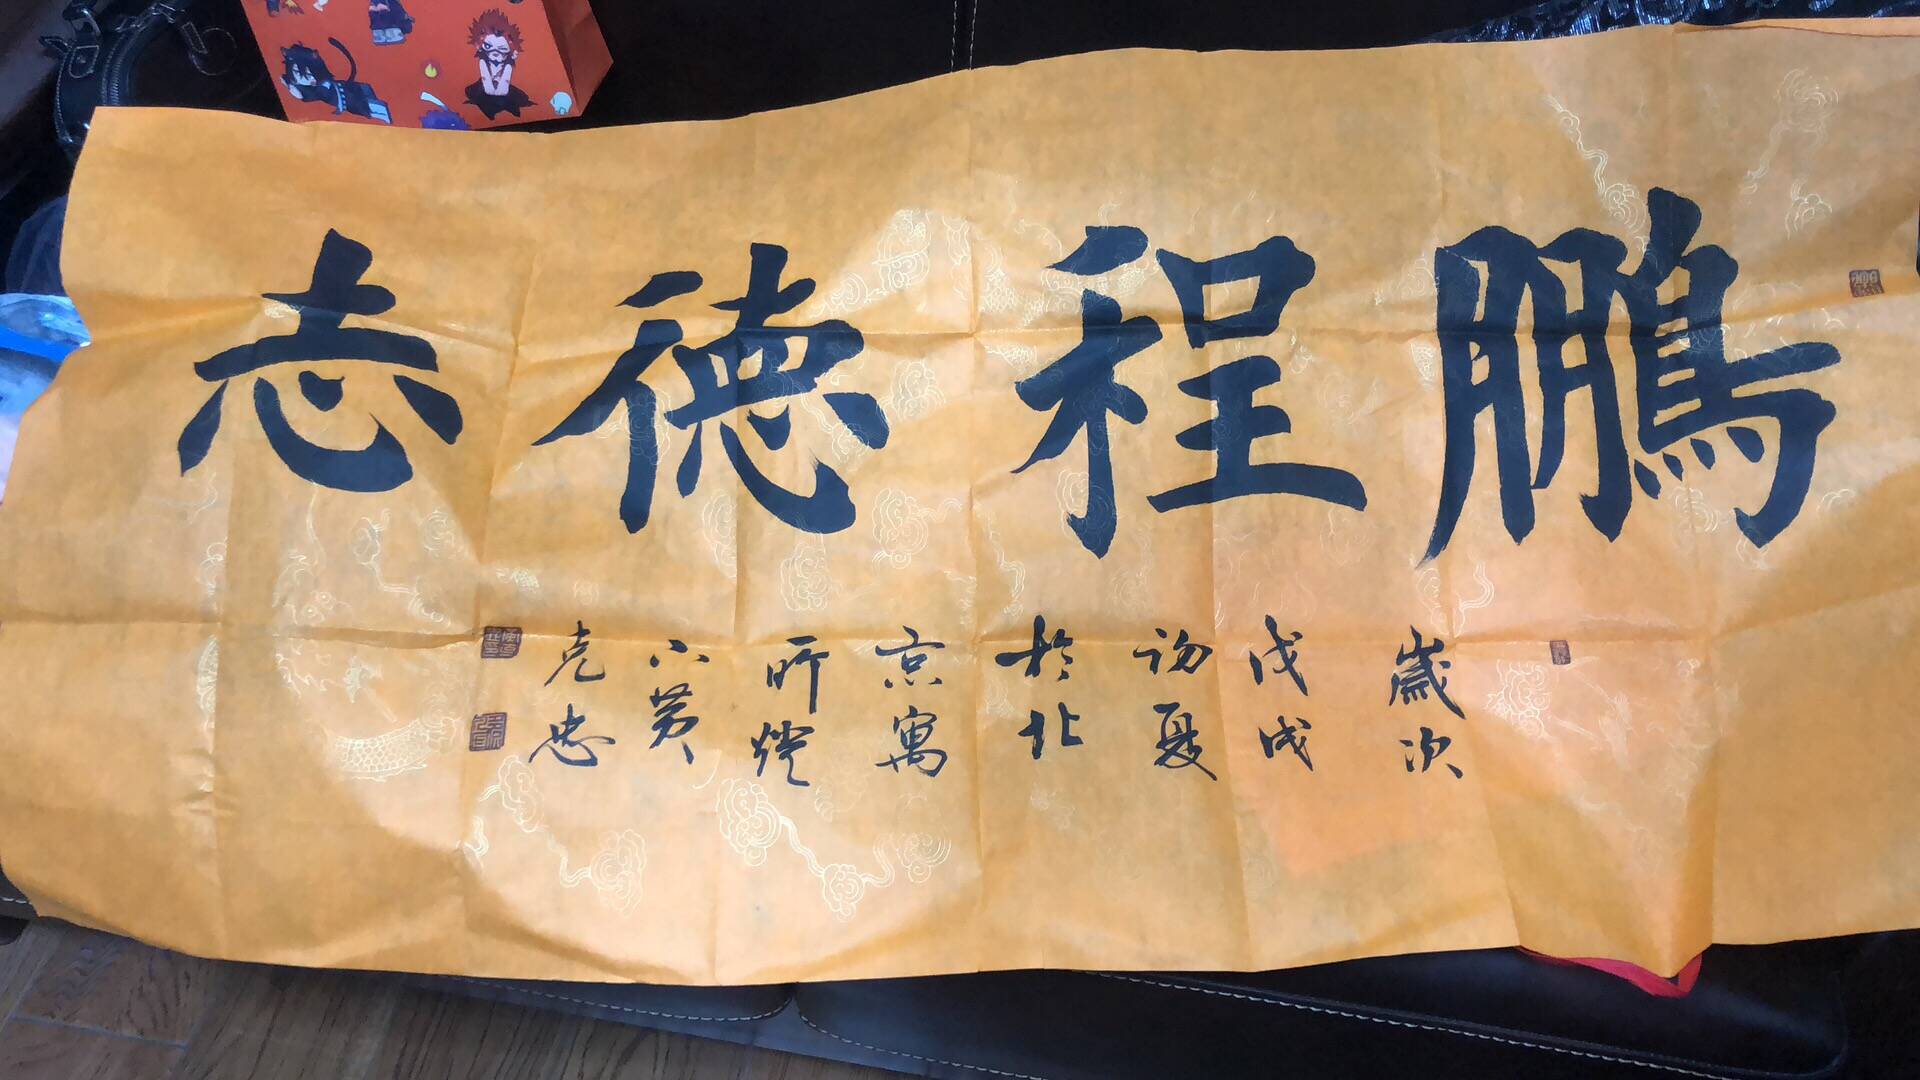 鵬程德志
歲次
戊戌
初夏
於北
京寓
昕燈
下黄
克忠